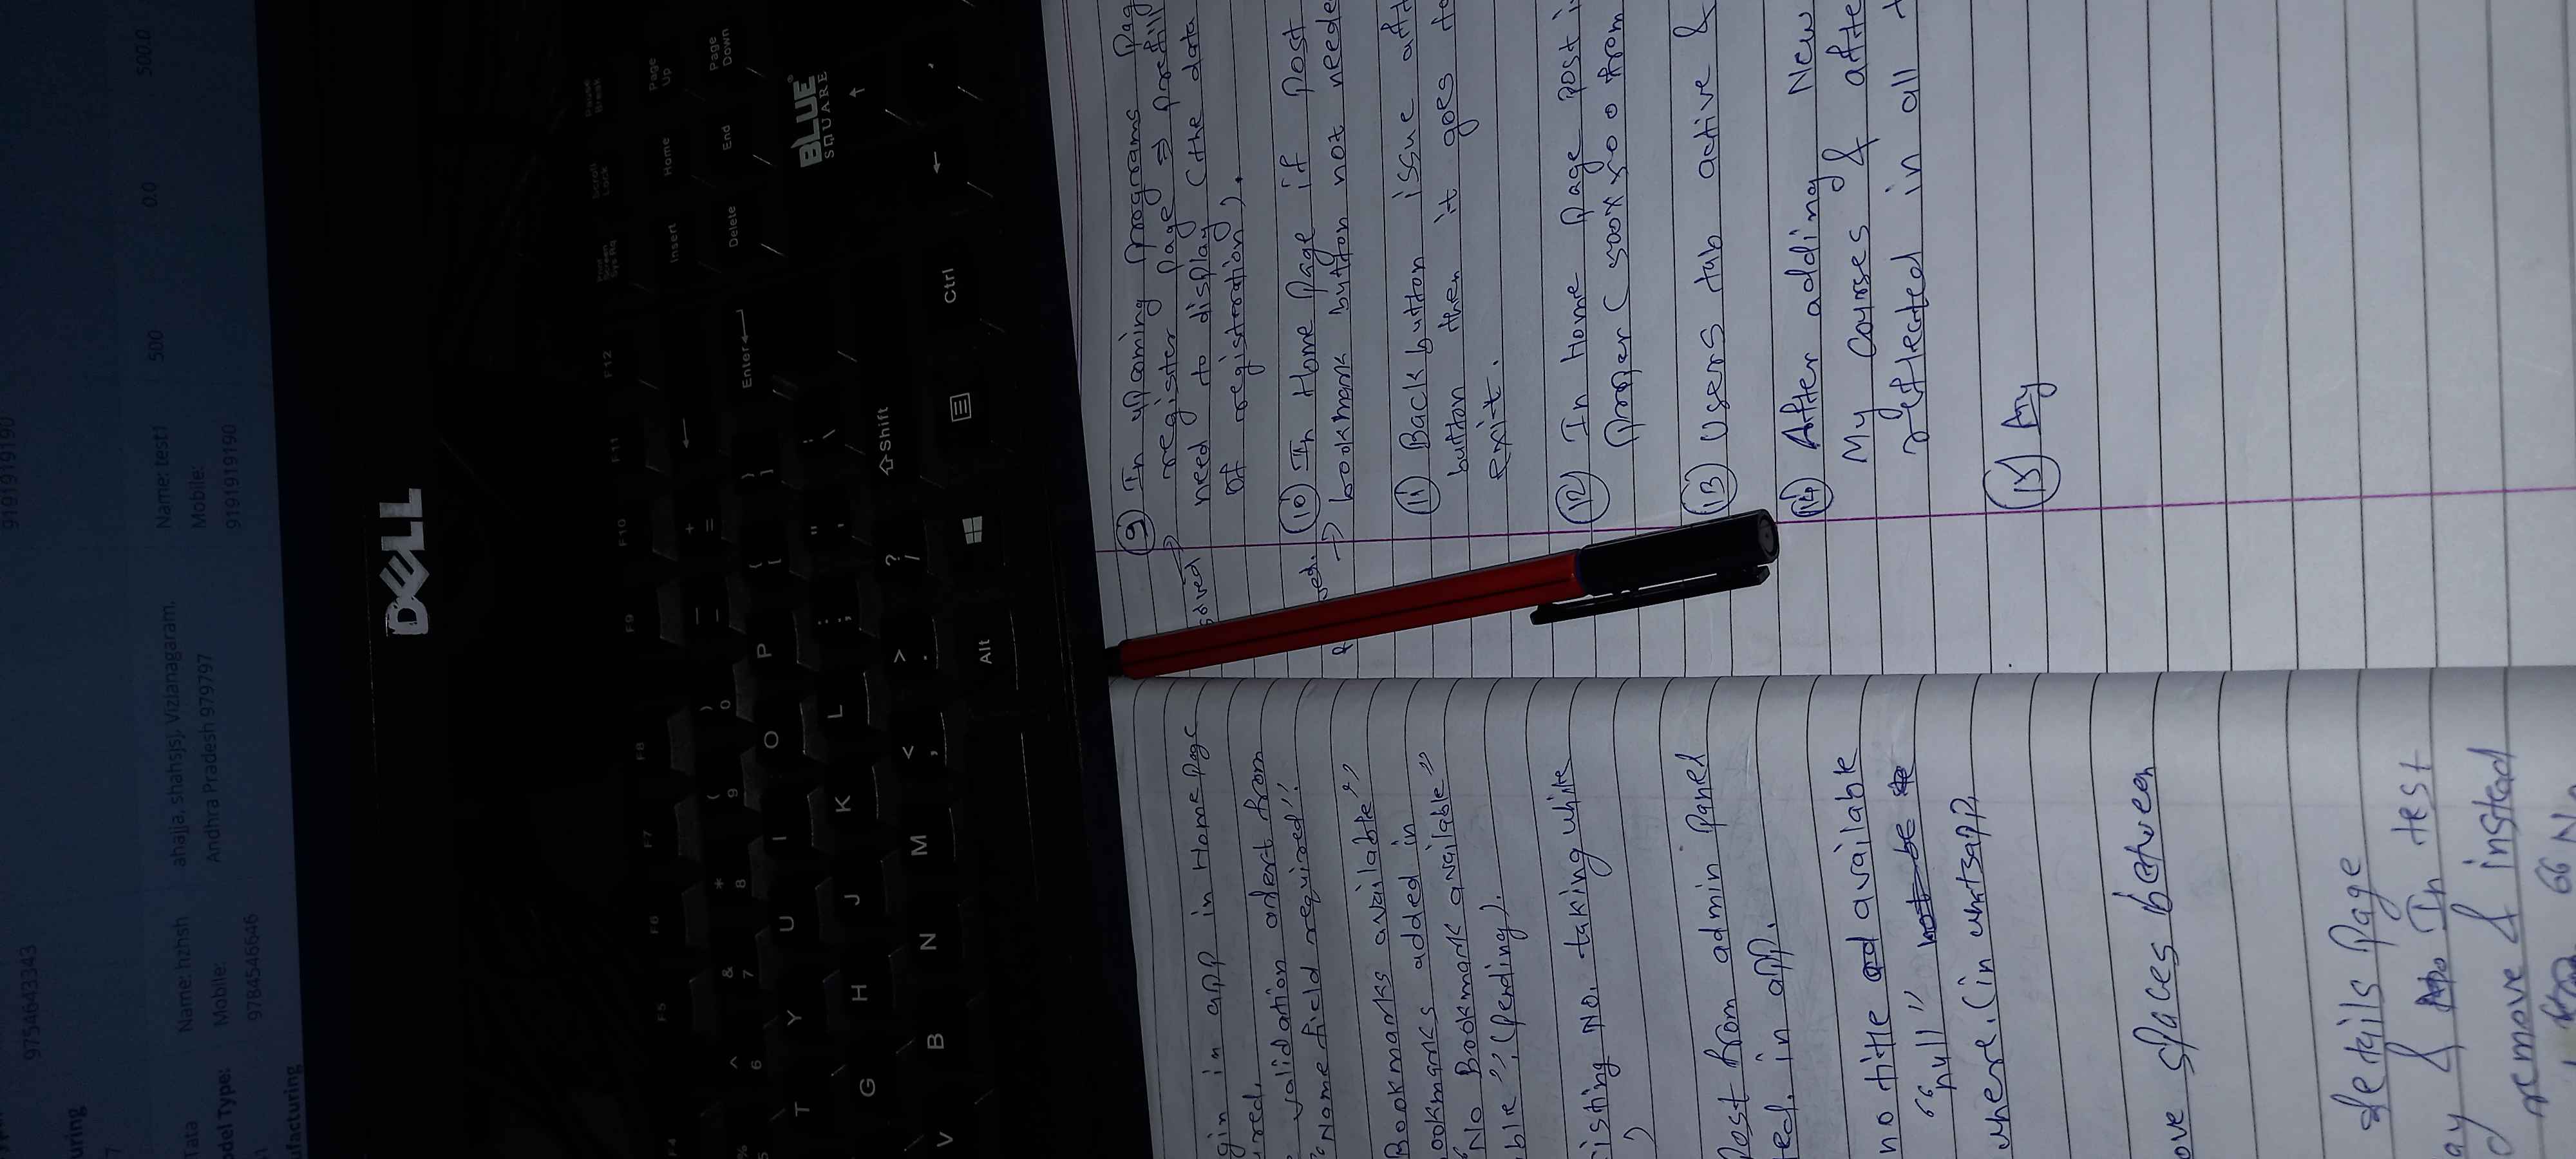 9754643343
9191919190
uring
7
Tata
Name: hzhsh
ahajja, shahsjsj, Vizianagaram,
Name: test1
500
0.0
500.0
odel Type:
Mobile:
Andhra Pradesh 979797
Mobile:
9784546646
9191919190
ufacturing
DELL
F4 F5 F6 F7 F8 F9 F10 F11 F12
Print Screen Sys Rq
Scroll Lock
Pause Break
% 5 ^ 6 & 7 * 8 ( 9 ) 0 — - + = ←
Insert Home Page Up
T Y U I O P { [ } ] Enter
Delete End Page Down
G H J K L : ; " ' | \
BLUE
SQUARE
V B N M < , > . ? / Shift ↑
Alt Ctrl ←
gin in app in Home Page
ured.
validation alert from
"Name field required"!
Bookmarks available"
ookmarks added in
"No Bookmark available"
ble", (Pending).
isting No. taking white
)
Post from admin Panel
ted. in app.
no title available
"null" not be
where. (in whatsapp,
ove spaces between
details Page
ay & In test
remove & instead
"No
9 In upcoming programs Pag
→ register page ⇒ prefill
solved
need to display (the data
of registeration).
10 In Home Page if Post
ved.
→ bookmark button not neede
11 Back button issue aft
button then it goes to
exit.
12 In Home Page post i
Proper (500x500 from
13 Users tab active &
14 After adding New
My Courses & afte
reflected in all t
15